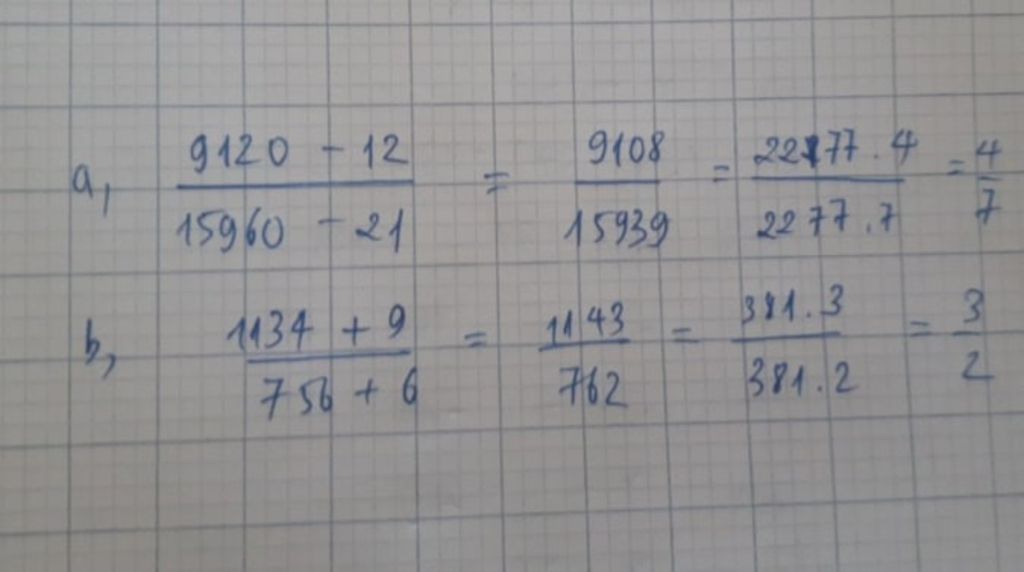 a, (9120 - 12)/(15960 - 21) = 9108/15939 = (2277 . 4)/(2277 . 7) = 4/7
b, (1134 + 9)/(756 + 6) = 1143/762 = (381 . 3)/(381 . 2) = 3/2